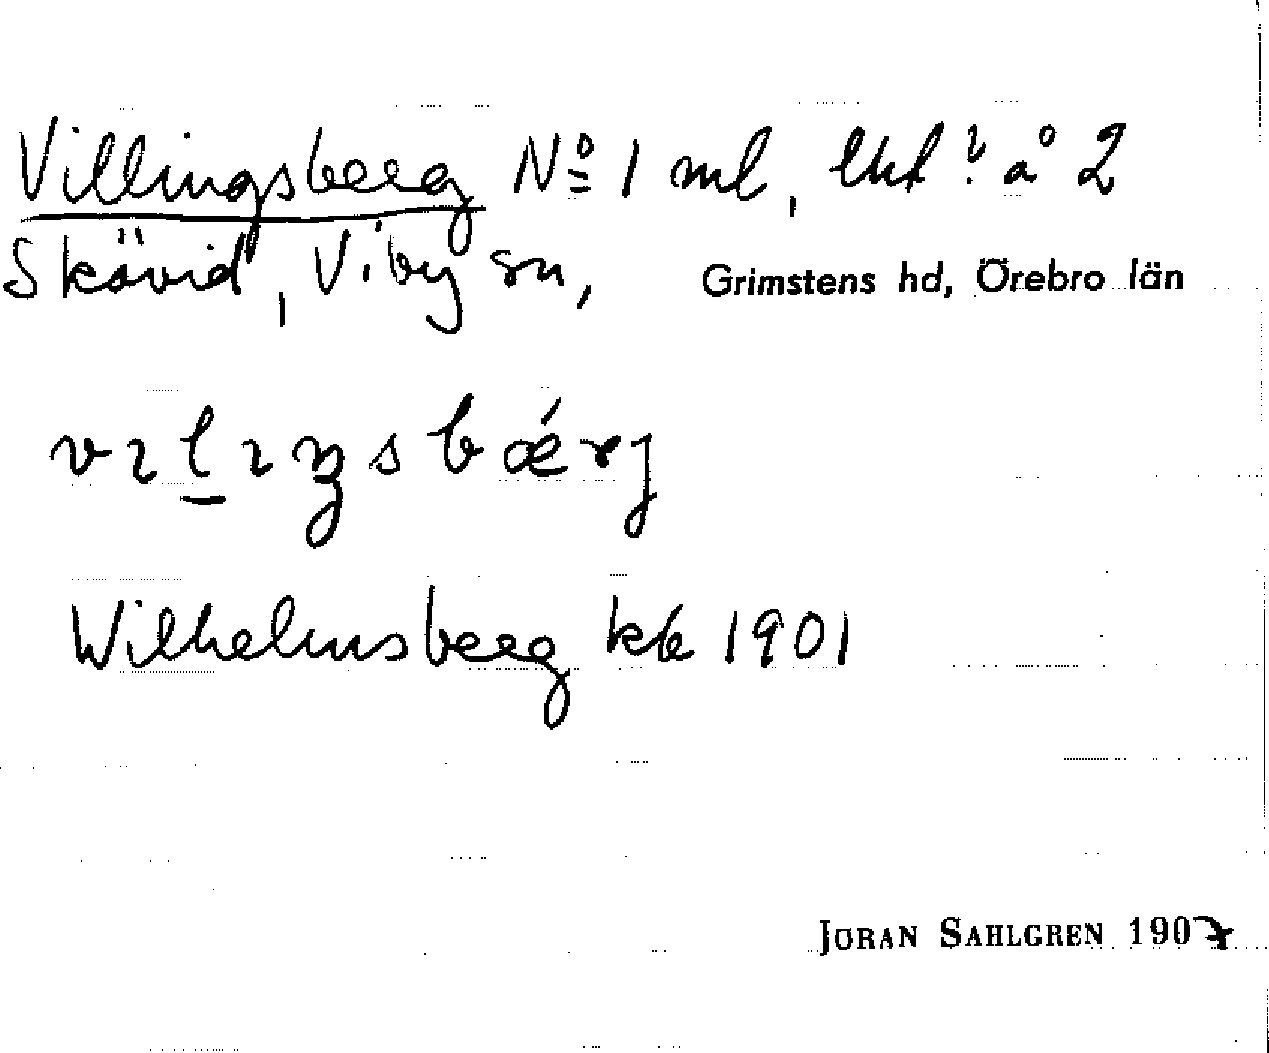 Villingsberg No 1 ml, lht ? å 2
Skävid, Viby sn, Grimstens hd, Örebro län
vılıŋsbǽrj
Wilhelmsberg kb 1901
JÖRAN SAHLGREN 1907